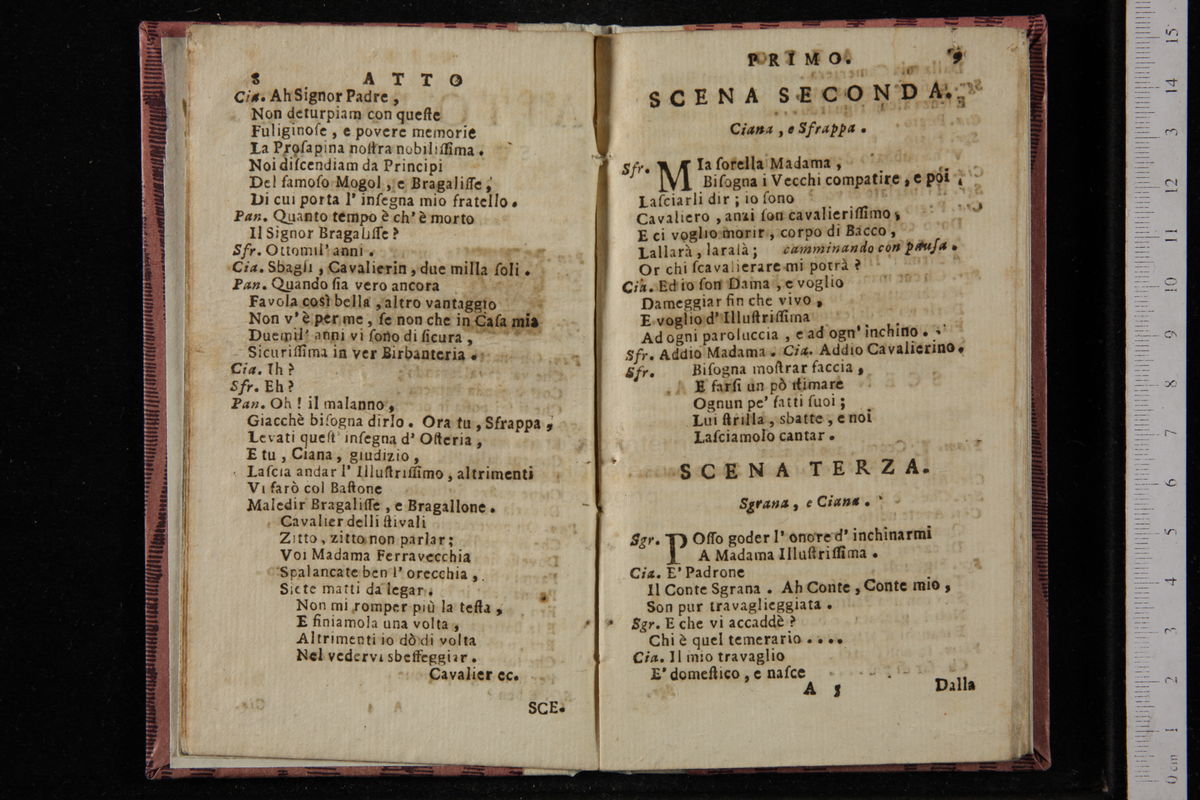 8 ATTO
Cia. Ah Signor Padre ,
Non deturpiam con queſte
Fuliginoſe , e povere memorie
La Proſapina noſtra nobiliſſima .
Noi diſcendiam da Principi
Del famoſo Mogol , e Bragaliſſe ,
Di cui porta l' inſegna mio fratello .
Pan. Quanto tempo è ch' è morto
Il Signor Bragaliſſe ?
Sfr. Ottomil' anni .
Cia. Sbagli , Cavalierin , due milla ſoli .
Pan. Quando ſia vero ancora
Favola così bella , altro vantaggio
Non v' è per me , ſe non che in Caſa mia
Duemil' anni vi ſono di ſicura ,
Sicuriſſima in ver Birbanteria .
Cia. Ih ?
Sfr. Eh ?
Pan. Oh ! il malanno ,
Giacchè biſogna dirlo . Ora tu , Sfrappa ,
Levati queſt' inſegna d' Oſteria ,
E tu , Ciana , giudizio ,
Laſcia andar l' Illuſtriſſimo , altrimenti
Vi farò col Baſtone
Maledir Bragaliſſe , e Bragallone .
Cavalier delli ſtivali
Zitto , zitto non parlar ;
Voi Madama Ferravecchia
Spalancate ben l' orecchia ,
Siete matti da legar .
Non mi romper più la teſta ,
E finiamola una volta ,
Altrimenti io dò di volta
Nel vedervi sbeffeggiar .
Cavalier ec.
SCE-
PRIMO. 9
SCENA SECONDA.
Ciana , e Sfrappa .
Sfr. MIa ſorella Madama ,
Biſogna i Vecchi compatire , e poi ,
Laſciarli dir ; io ſono
Cavaliero , anzi ſon cavalieriſſimo ,
E ci voglio morir , corpo di Bacco ,
Lallarà , laralà ; camminando con pauſa .
Or chi ſcavalierare mi potrà ?
Cia. Ed io ſon Dama , e voglio
Dameggiar fin che vivo ,
E voglio d' Illuſtriſſima
Ad ogni paroluccia , e ad ogn' inchino .
Sfr. Addio Madama . Cia. Addio Cavalierino .
Sfr. Biſogna moſtrar faccia ,
E farſi un pò ſtimare
Ognun pe' fatti ſuoi ;
Lui ſtrilla , sbatte , e noi
Laſciamolo cantar .
SCENA TERZA.
Sgrana , e Ciana .
Sgr. POſſo goder l' onore d' inchinarmi
A Madama Illuſtriſſima .
Cia. E' Padrone
Il Conte Sgrana . Ah Conte , Conte mio ,
Son pur travaglieggiata .
Sgr. E che vi accaddè ?
Chi è quel temerario . . . .
Cia. Il mio travaglio
E' domeſtico , e naſce
A 5 Dalla
0 cm 1 2 3 4 5 6 7 8 9 10 11 12 13 14 15